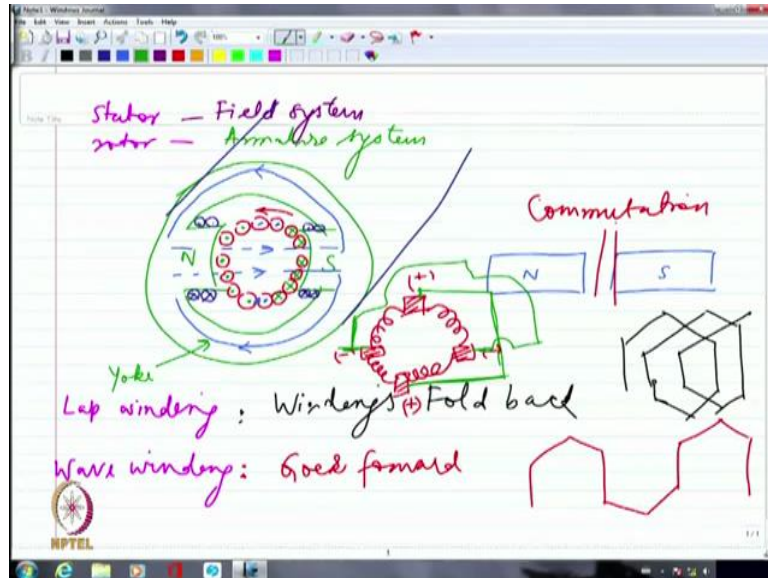 Note1 - Windows Journal
File Edit View Insert Actions Tools Help
100%
B I
Note Title
Stator - Field system
rotor - Armature system
Commutation
N S
N S
(+)
(-) (-)
(+)
Yoke
Lap winding : Windings Fold back
Wave winding : Goes forward
NPTEL
1/1
1